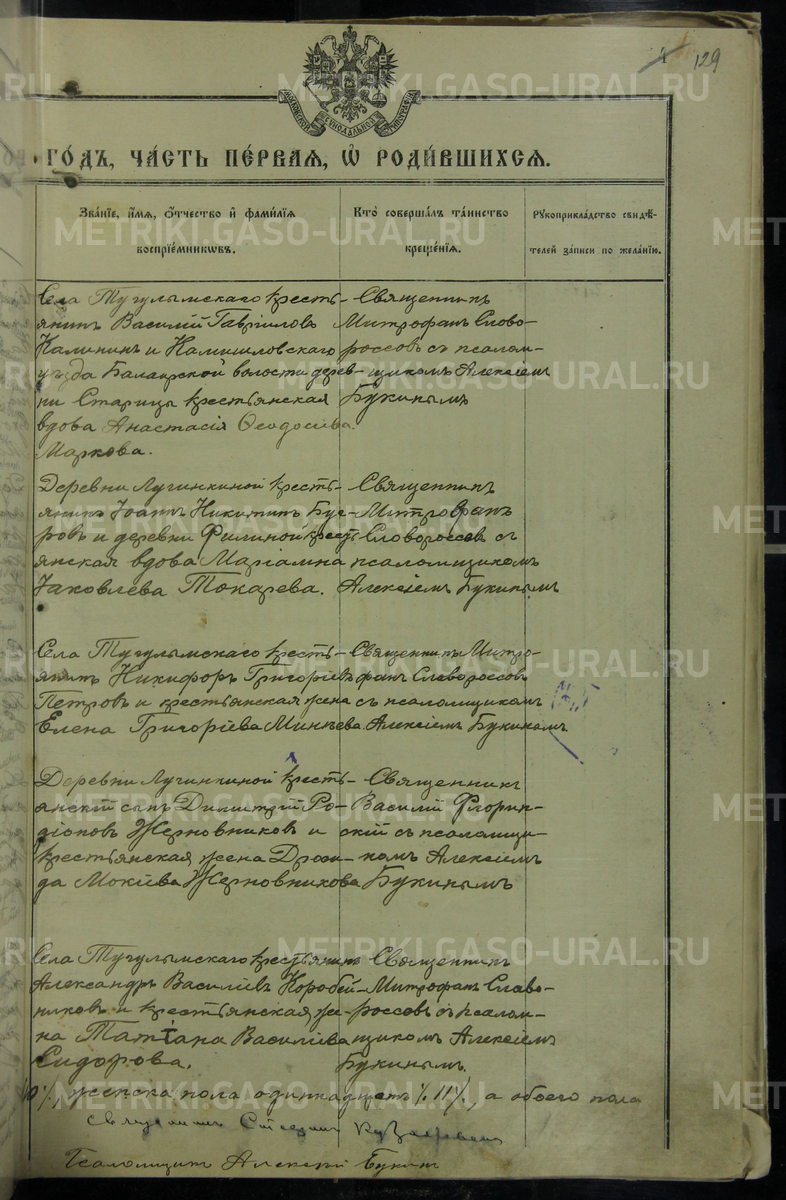 129
МОСКОВСКОЙ СѴНОДАЛЬНОЙ ТИПОГРАФІИ
ГО́ДЪ, ЧА́СТЬ ПЕ́РВАЯ, Ѡ҆ РОДИ́ВШИХСЯ.
Зва́нїе, и҆́мя, ѻ҆́тчество и҆ фами́лїя
воспрїе́мникѡвъ.
Кто̀ соверша́лъ та́инство
креще́нїя.
Рꙋкоприкла́дство свидѣ́-
телей за́писи по жела́нїю.
Села Тугулымскаго кресть-
янинъ Василій Гавріиловъ
Калининъ и Камышловскаго
уѣзда Балаирской волости дерев-
ни Старицы крестьянская
вдова Анастасія Ѳеодосіева
Маркова.
Священникъ
Митрофанъ Слово-
россовъ съ псалом-
щикомъ Алексіемъ
Букинымъ
Деревни Лучинкиной кресть-
янинъ Іоаннъ Никитинъ Буг-
ровъ и деревни Филиной кресть-
янская вдова Маріамна
Іаковлева Токарева.
Священникъ
Митрофанъ
Словороссовъ съ
псаломщикомъ
Алексіемъ Букинымъ
Села Тугулымскаго кресть-
янинъ Никифоръ Григоріевъ
Петровъ и крестьянская жена
Елена Григоріева Минѣева
Священникъ Митро-
фанъ Словороссовъ
съ псаломщикомъ
Алексіемъ Букинымъ
Деревни Лучинкиной кресть-
янскій сынъ Димитрій Ро-
діоновъ Жерновниковъ и
крестьянская жена Дроси-
да Мокіева Жерновникова
Священникъ
Василій Флорин-
скій съ псаломщи-
комъ Алексіемъ
Букинымъ
Села Тугулымскаго крестьянинъ
Александръ Василіевъ Коробей-
никовъ и крестьянская же-
на Татіана Василіева
Сидорова.
Священникъ
Митрофанъ Слово-
россовъ съ псалом-
щикомъ Алексіемъ
Букинымъ.
10%, женска пола одиннадцать %11%, а обоего пола
Священникъ Стефанъ
Псаломщикъ Алексій Букинъ
METRIKI.GASO-URAL.RU